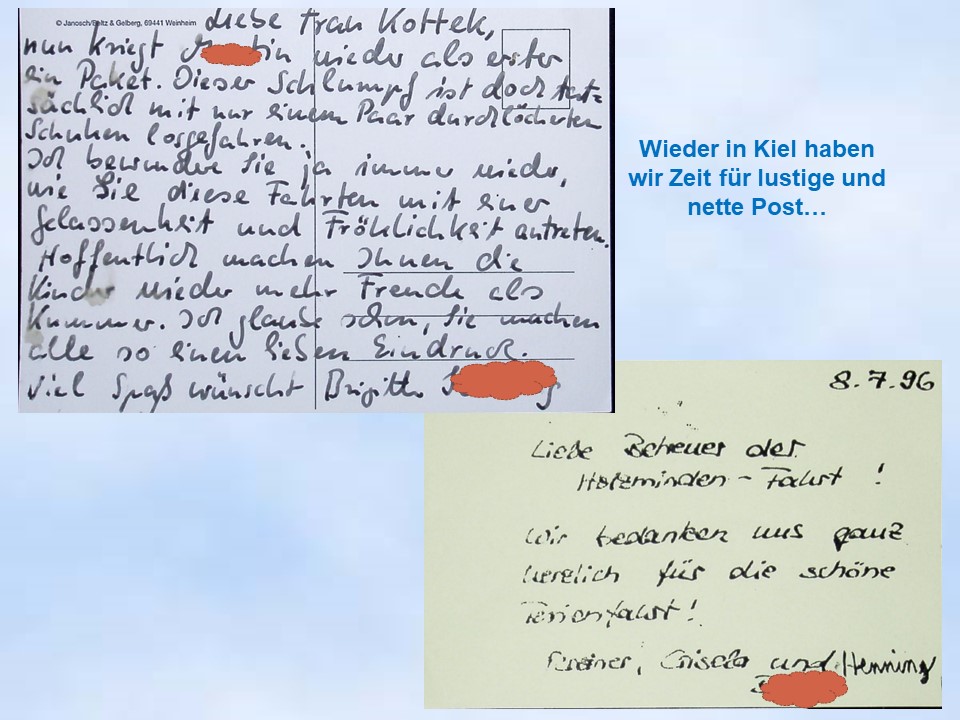 © Janosch/Beltz & Gelberg, 69441 Weinheim
Liebe Frau Kottek,
nun kriegt wieder als erster
ein Paket. Dieser Schlumpf ist doch tat-
sächlich mit nur einem Paar durchlöcherten
Schuhen losgefahren.
Ich bewundere Sie ja immer wieder,
wie Sie diese Fahrten mit einer
Gelassenheit und Fröhlichkeit antreten.
Hoffentlich machen Ihnen die
Kinder wieder mehr Freude als
Kummer. Ich glaube schon, sie machen
alle so einen lieben Eindruck.
Viel Spaß wünscht Brigitte
Wieder in Kiel haben
wir Zeit für lustige und
nette Post…
8.7.96
Liebe Betreuer der
Holzminden-Fahrt!
Wir bedanken uns ganz
herzlich für die schöne
Ferienfahrt!
Gisela und Henning